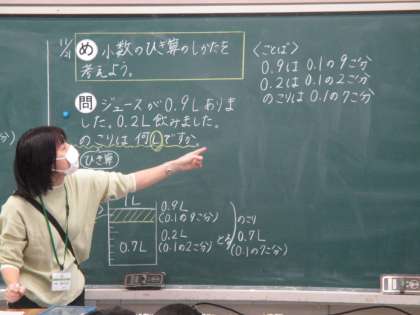 11/11
め 小数のひき算のしかたを
考えよう。
問 ジュースが0.9Lありま
した。0.2L飲みました。
のこりは何Lですか。
ひき算
1L
0.9L
(0.1の9こ分)
0.2L
(0.1の2こ分)
とる
0.7L
のこり
0.7L
(0.1の7こ分)
<ことば>
0.9は0.1の9こ分
0.2は0.1の2こ分
のこりは0.1の7こ分